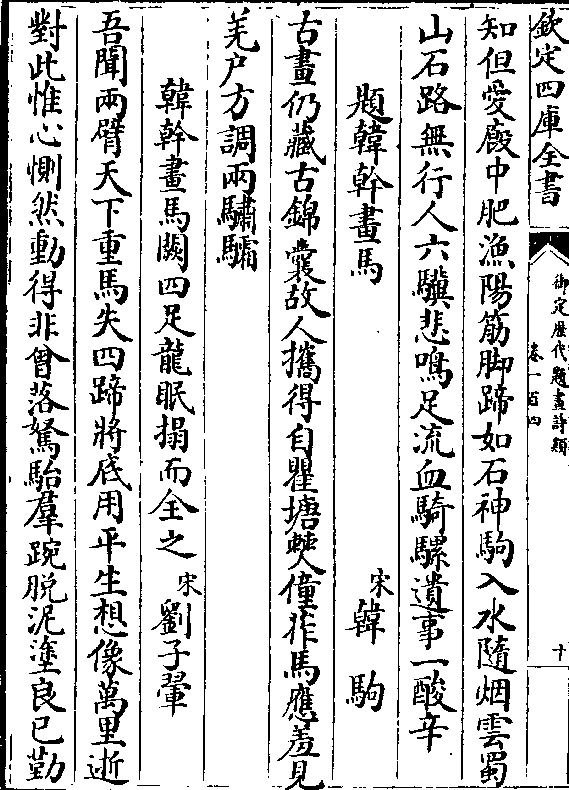 欽定四庫全書
御定歷代題畫詩類
卷一百四
十
知但愛廐中肥漁陽筋脚蹄如石神駒入水隨烟雲蜀
山石路無行人六驥悲鳴足流血騎騾遺事一酸辛
題韓幹畫馬 宋韓駒
古畫仍藏古錦囊故人攜得自瞿塘僰僮作馬應羞見
羌户方調兩驌驦
韓幹畫馬闕四足龍眠搨而全之 宋劉子翬
吾聞兩臂天下重馬失四蹄將底用平生想像萬里逝
對此惟心惻然動得非曾落駑駘羣踠脱泥塗良已勤